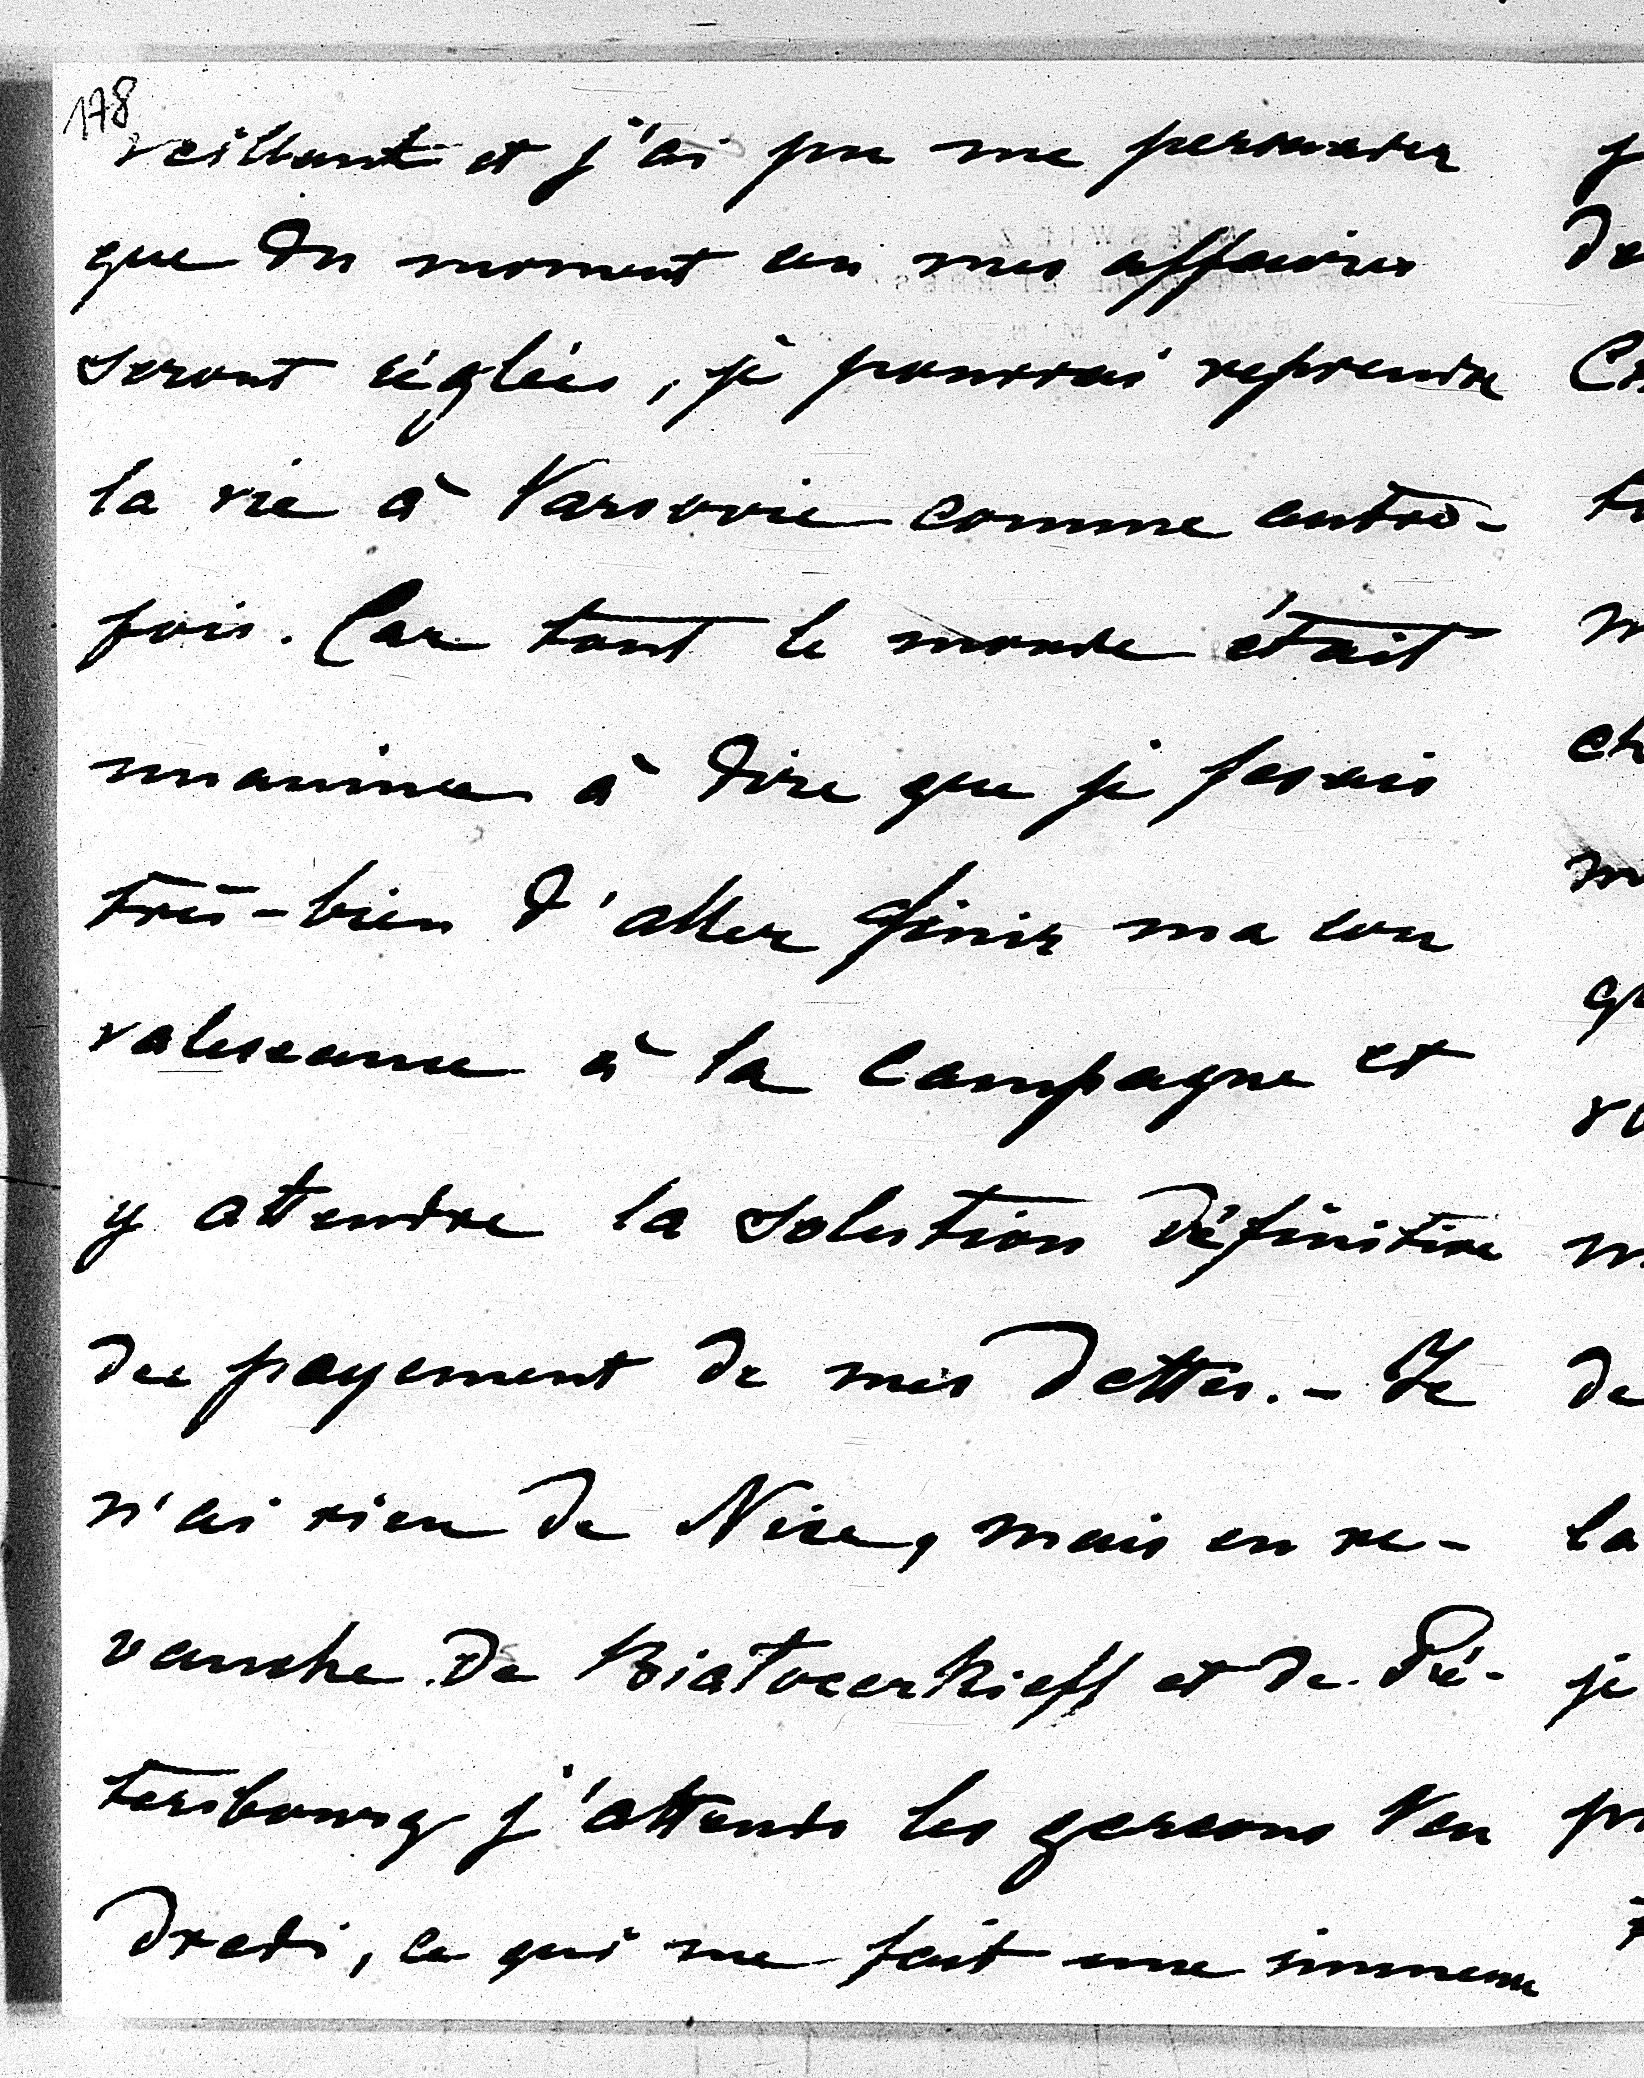 178
veillante et j'ai pu me persuader
que du moment où mes affaires
seront réglées, je pourrai reprendre
la vie à Varsovie comme autre-
fois. Car tout le monde était
unanime à dire que je fesais
très-bien d'aller finir ma con
valescance à la campagne et
y attendre la solution définitive
du payement de mes dettes. - Je
n'ai rien de Nice, mais en re-
vanche de Białocerkieff et de Pé-
tersbourg j'attends les garçons Ven
dredi, ce qui me fait une immense